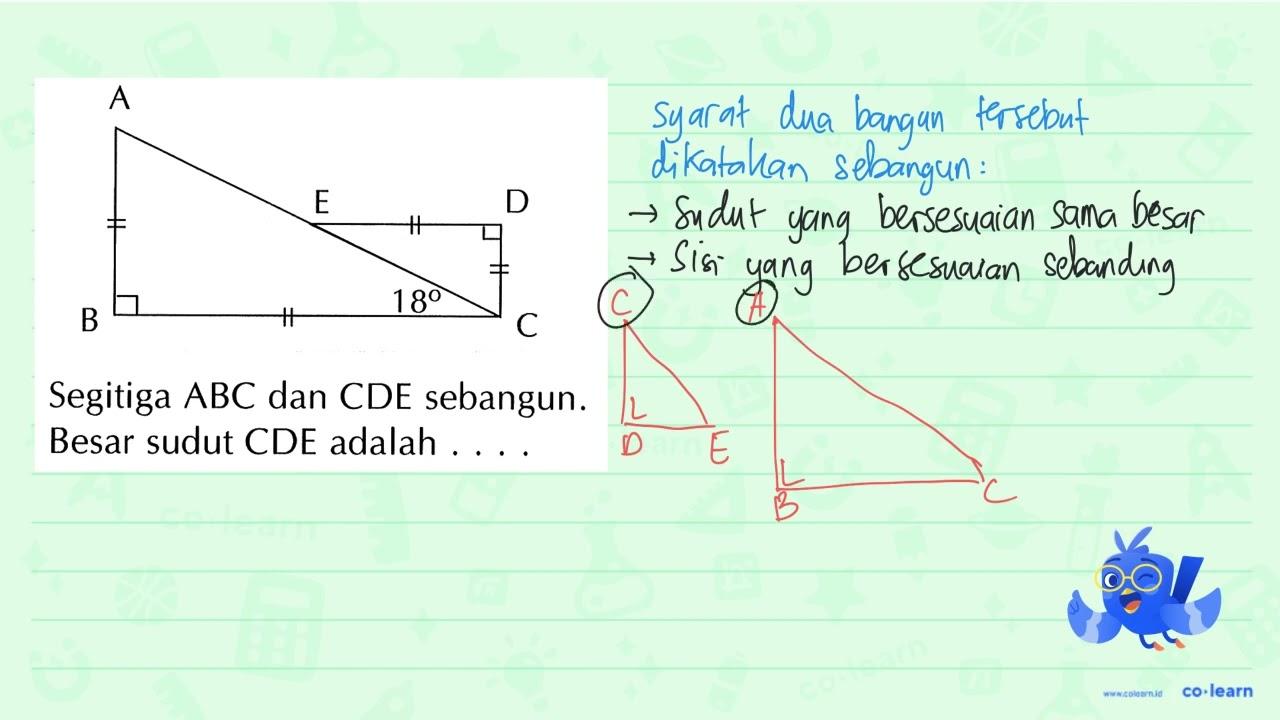 A
E
D
18°
B
C
Segitiga ABC dan CDE sebangun.
Besar sudut CDE adalah . . . .
syarat dua bangun tersebut
dikatakan sebangun:
→ Sudut yang bersesuaian sama besar
→ Sisi yang bersesuaian sebanding
C
A
D
E
B
C
co·learn
co·learn
co·learn
www.colearn.id
co·learn